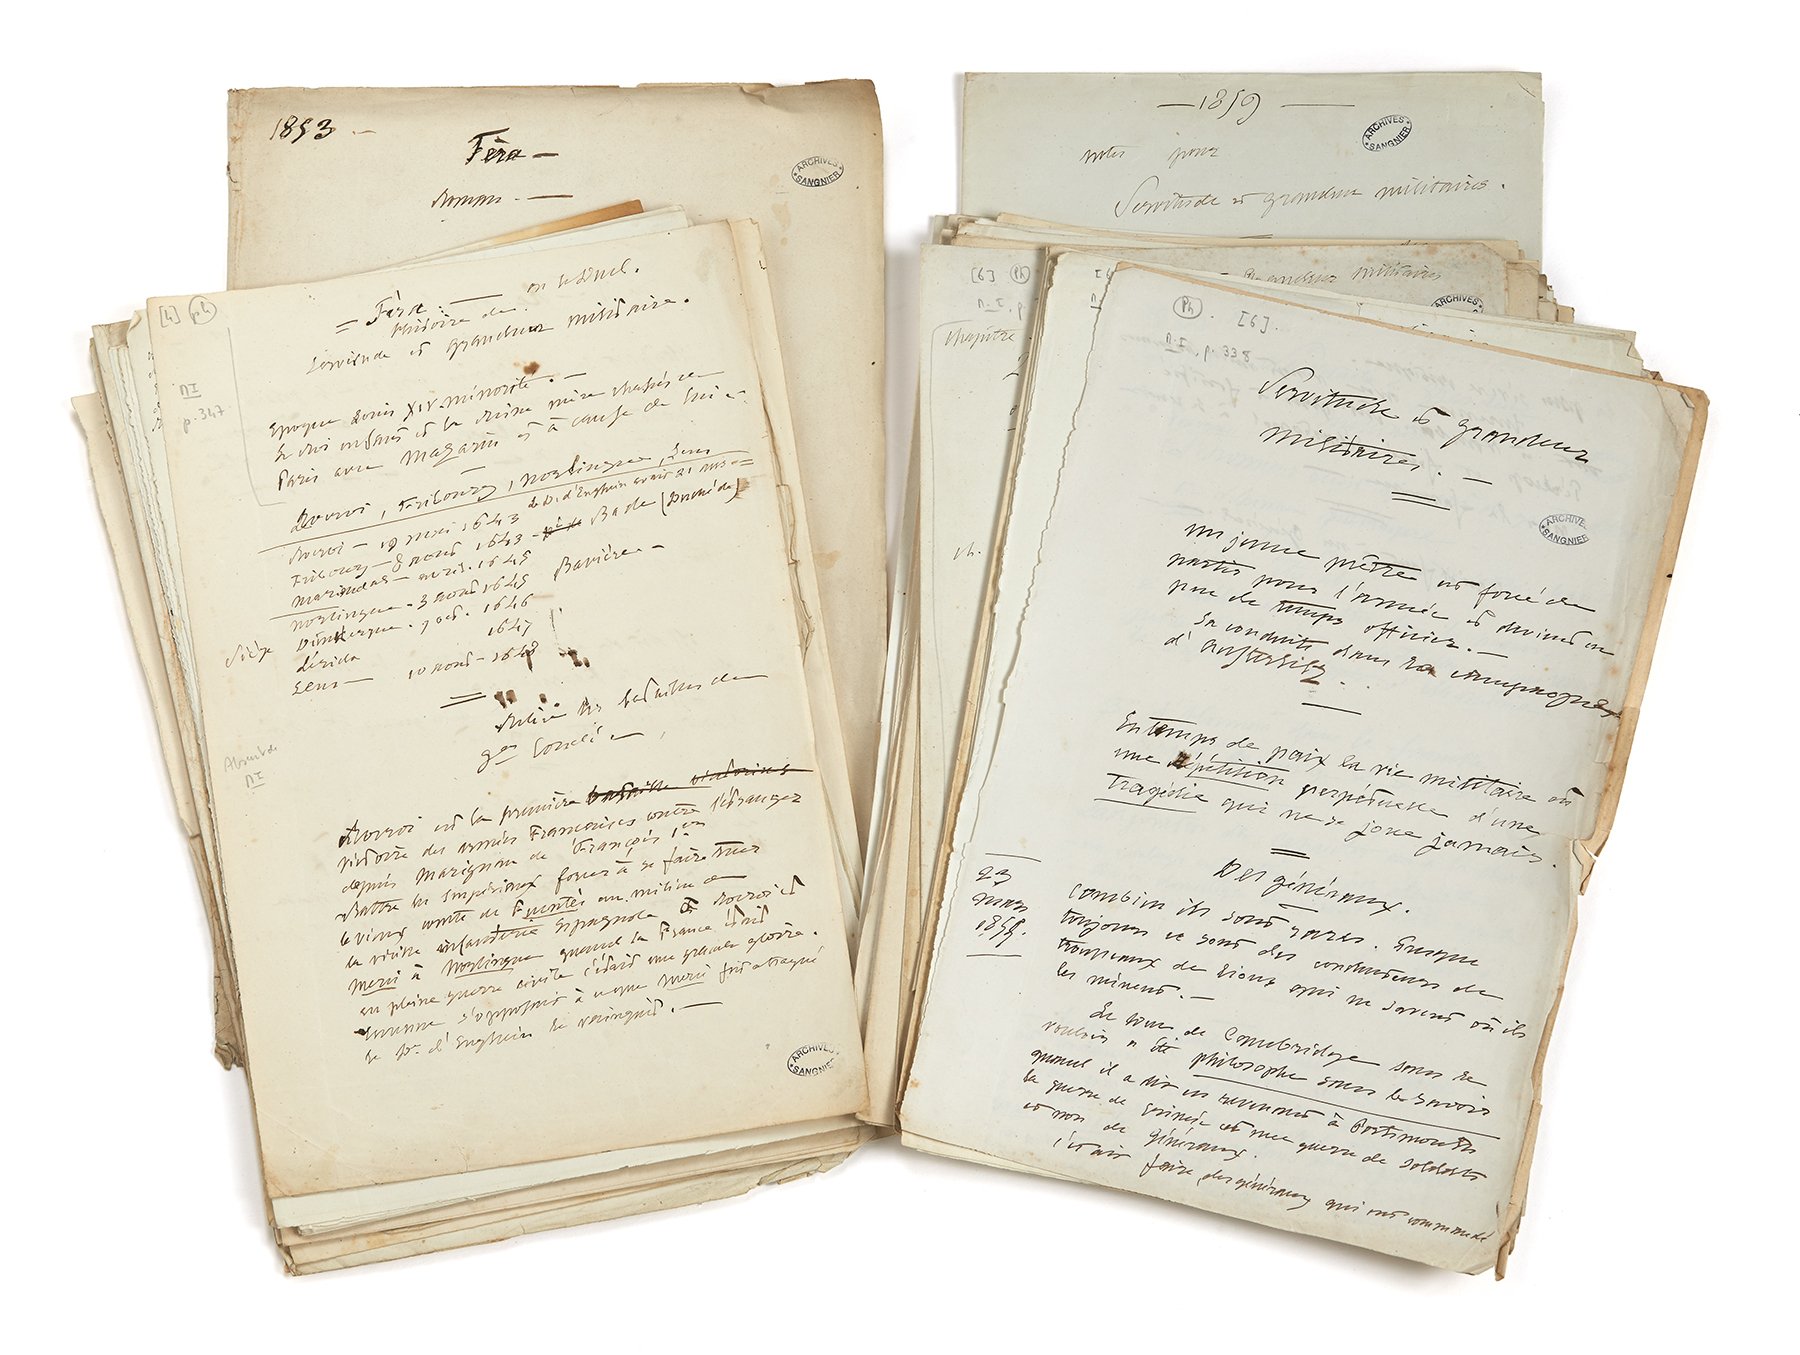 1853 —
Fèra —
Roman. —
ARCHIVES SANGNIER
[4] ph
= Fèra. — on
histoire de
Servitude et grandeur militaire.
N I
p. 347
Epoque Louis XIV. minorité. —
le Roi enfant et la Reine mère chassés de
Paris avec Mazarin et à cause de lui —
Rocroi, Fribourg, Nortlingue, Lens
le D. d'Enghien avait 21 ans =
Rocroi — 19 mai 1643
Fribourg — 8 août 1643 — Bade (Duché de)
Mariendal — avril. 1645
Nortlingue. 3 août 1645 Bavière —
Siège Dunkerque. 7 oct. 1646
Lérida 1647
Lens — 10 août — 1648
=
Relire les batailles du
gd Condé —
Absent de
N I
Rocroi est la première bataille
victoire des armées Françaises contre l'étranger
depuis Marignan de François 1er
Battre les Impériaux forcer à se faire tuer
le vieux comte de Fuentès au milieu de
la vieille infanterie Espagnole à Rocroi et
Merci à Nortlingue quand la France était
en pleine guerre civile c'était une grande gloire.
Turenne s'opposait à ce que Merci fut attaqué
le D. d'Enghien le vainquit. —
ARCHIVES SANGNIER
— 1859 —
ARCHIVES SANGNIER
notes pour
Servitude et grandeur militaires.
grandeur militaires
ARCHIVES
[6] Ph
N I
chapitre
ch.
Ph. [6].
N. I, p. 338
Servitude et grandeur
militaires. —
=
ARCHIVES SANGNIER
un jeune prêtre est forcé de
partir pour l'armée et devient en
peu de temps officier. —
Sa conduite dans la campagne
d'Austerlitz.
—
En temps de paix la vie militaire est
une répétition perpétuelle d'une
tragédie qui ne se joue jamais.
=
Des généraux.
23
mars
1855.
combien ils sont rares. Presque
toujours ce sont des conducteurs de
troupeaux de lions qui ne savent où ils
les mènent. —
Le duc de Cambridge sans le
vouloir a été philosophe sans le savoir
quand il a dit en revenant à Portsmouth
la guerre de Crimée est une guerre de soldats
et non de Généraux.
c'était faire des généraux qui ont commandé